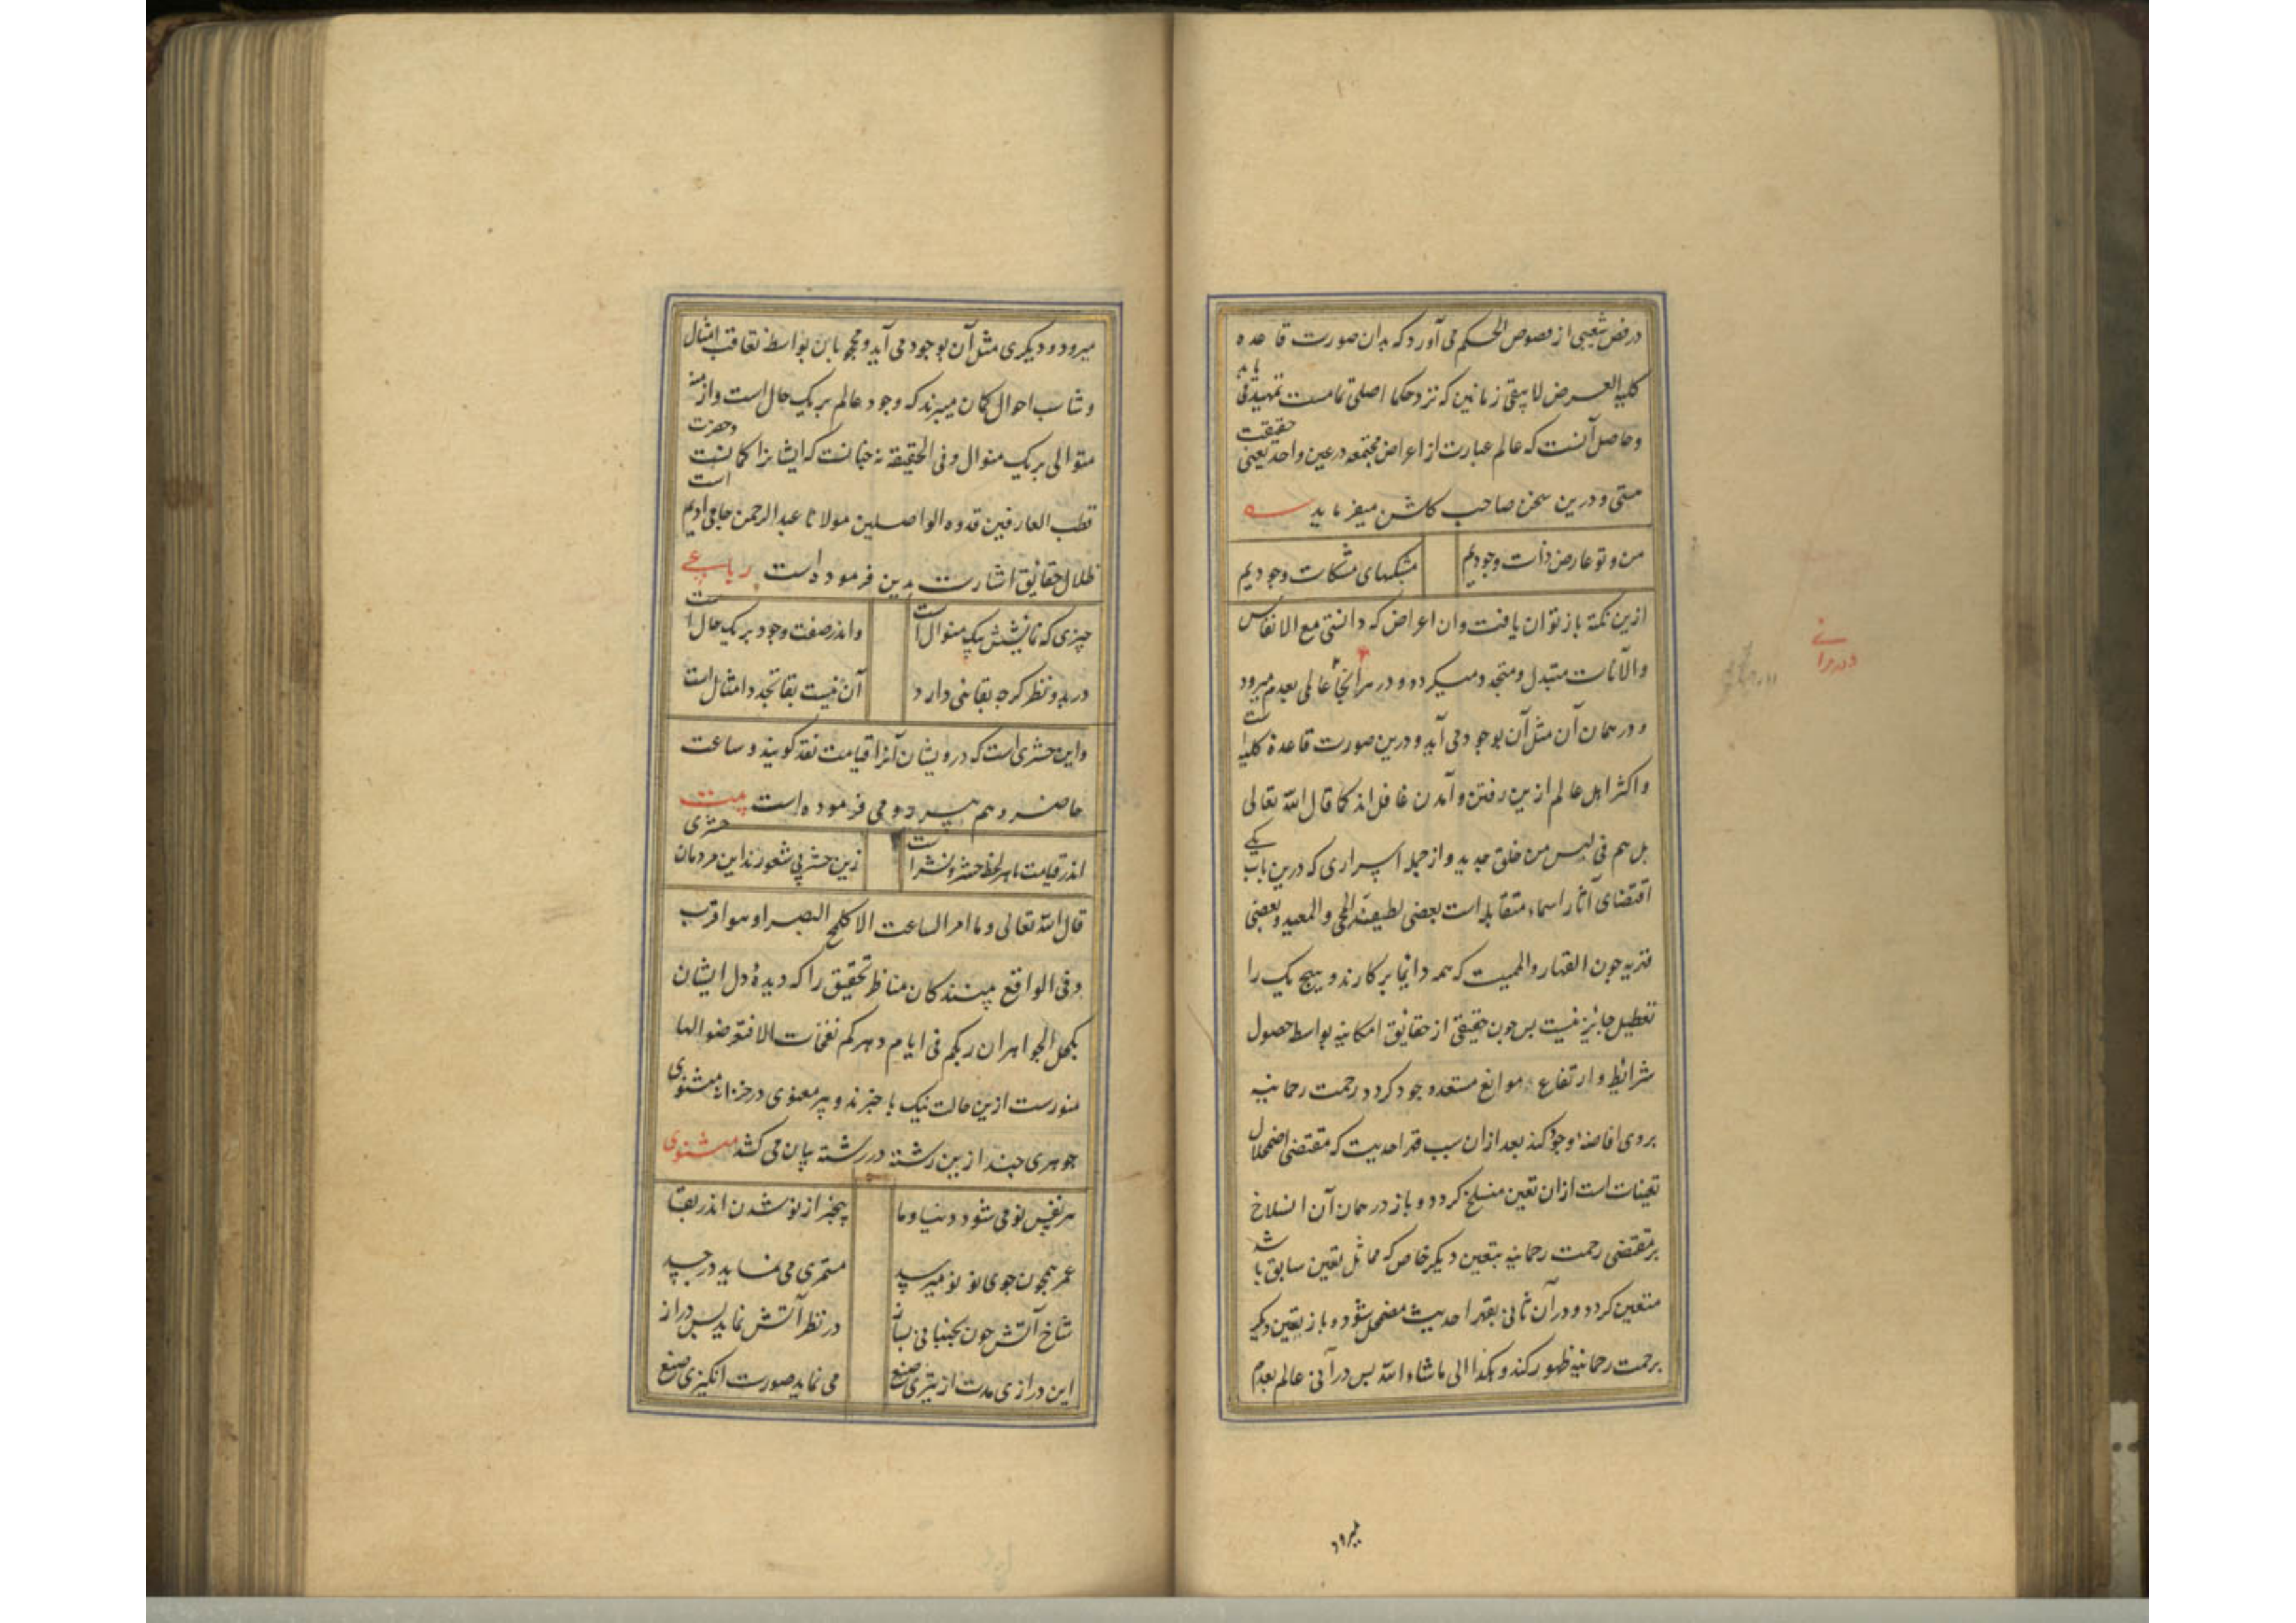 در فص شعیبی از فصوص الحکم می آورد که بدان صورت قاعده
کلیه العرض لا یبقی زمانین که نزد حکما اصلی تمامست تمهید می یابد
و حاصل آنست که عالم عبارت از اعراض مجتمعه در عین واحد یعنی حقیقت
هستی و درین سخن صاحب کلشن میفرماید
من و تو عارض ذات وجودیم
مشبکهای مشکات وجودیم
ازین نکته باز توان یافت و ان اعراض که دانستی مع الانفاس
والآنات متبدل و متجدد میکردد و در هر آنجا عالمی بعدم میرود
و در همان آن مثل آن بوجود می آید و درین صورت قاعده کلیه است
و اکثر اهل عالم ازین رفتن و آمدن غافل اند کما قال الله تعالی
بل هم فی لبس من خلق جدید و از جمله اسراری که درین باب یکی
اقتضای آثار اسماء متقابله است بعضی لطیفه المحی والمعید و بعضی
قهریه جون القهار والممیت که همه دائما بر کارند و هیچ یک را
تعطیل جایز نیست بس جون حقیقتی از حقایق امکانیه بواسطه حصول
شرائط و ارتفاع موانع مستعد وجود کردد رحمت رحمانیه
بر وی افاضه وجود کند بعد از ان سبب قهر احدیت که مقتضی اضمحلال
تعینات است از ان تعین منسلخ کردد و باز در همان آن انسلاخ
بر مقتضی رحمت رحمانیه بتعین دیکر خاص که مماثل تعین سابق باشد
متعین کردد و در آن ثانی بقهر احدیت مضمحل شود و باز بتعین دیکر
برحمت رحمانیه ظهور کند و هکذا الی ماشاء الله بس در آنی عالم بعدم
میرود
میرود و دیکری مثل آن بوجود می آید و محجوبان بواسطه تعاقب امثال
و تناسب احوال کمان میبرند که وجود عالم بر یک حال است و ازمنه
متوالی بر یک منوال و فی الحقیقه نه جنانست که ایشانرا کمانست و حضرت
قطب العارفین قدوه الواصلین مولانا عبدالرحمن جامی ادیم است
ظلال حقایق اشارت بدین فرموده است رباعی
جیزی که نمایشش بیک منوال است
واندر صفت وجود بر یک حال است
در بدو نظر کرجه بقائی دارد
آن نیست بقا تجدد امثال است
و این حشری است که درویشان آنرا قیامت نقد کویند و ساعت
حاضر و هم پیر رومی فرموده است بیت
اندر قیامت ما هر لحظه حشر و نشر است
زین حشر بی شعورند این مردمان حشری
قال الله تعالی و ما امر الساعت الا کلمح البصر او هو اقرب
و فی الواقع بینندکان مناظر تحقیق را که دیدهٔ دل ایشان
بکحل الجواهر ان ربکم فی ایام دهرکم نفحات الا فتعرضوا لها
منورست ازین حالت نیک با خبرند و پیر معنوی در خزانه مثنوی
جوهری جند ازین رشته در رشته بیان می کشد مثنوی
هر نفس نو می شود دنیا و ما
بیخبر از نو شدن اندر بقا
عمر همجون جوی نو نو میرسد
مستمری می نماید در جسد
شاخ آتش جون بجنبانی بساز
در نظر آتش نماید بس دراز
این درازی مدت از تیزی صنع
می نماید صورت انکیزی صنع